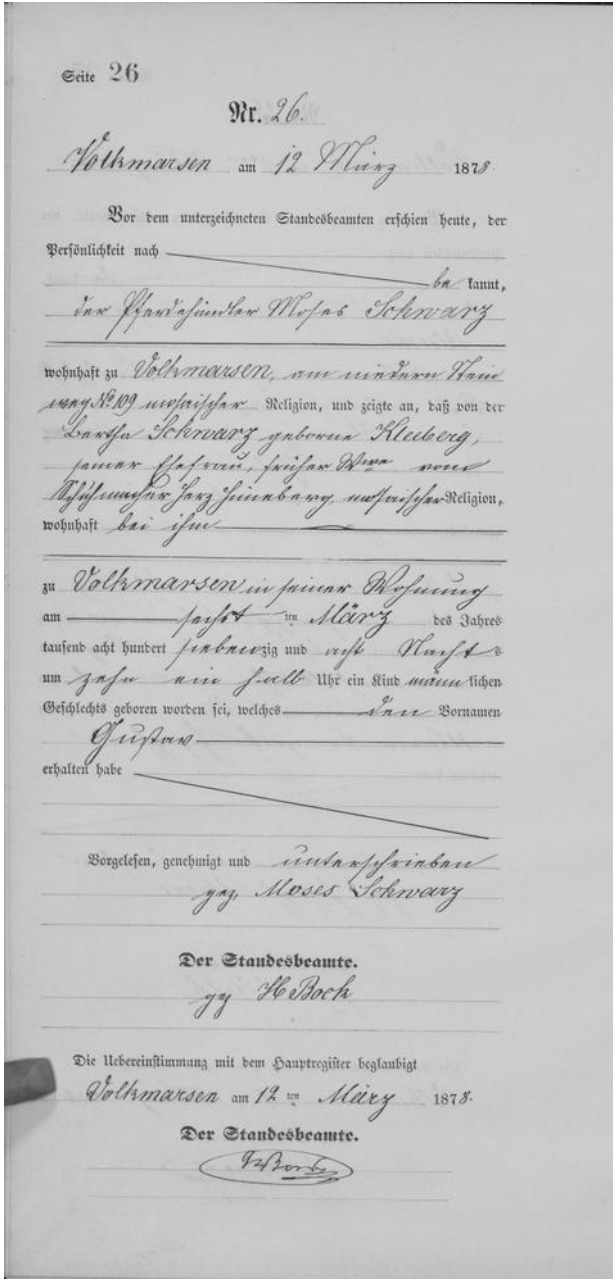 Seite 26
Nr. 26.
Volkmarsen am 12 März 1878.
Vor dem unterzeichneten Standesbeamten erschien heute, der
Persönlichkeit nach
be kannt,
der Pferdehändler Moses Schwarz
wohnhaft zu Volkmarsen, am niedern Stein
weg No. 109 mosaischer Religion, und zeigte an, daß von der
Bertha Schwarz geborne Kleeberg,
seiner Ehefrau, früher Wwe vom
Schuhmacher Herz Hüneberg, mosaischer Religion,
wohnhaft bei ihm
zu Volkmarsen in seiner Wohnung
am sechst ten März des Jahres
tausend acht hundert siebenzig und acht Nacht s
um zehn ein halb Uhr ein Kind männ lichen
Geschlechts geboren worden sei, welches den Vornamen
Gustav
erhalten habe
Vorgelesen, genehmigt und unterschrieben
gez. Moses Schwarz
Der Standesbeamte.
gez H Bock
Die Uebereinstimmung mit dem Hauptregister beglaubigt
Volkmarsen am 12 ten März 1878.
Der Standesbeamte.
HBock